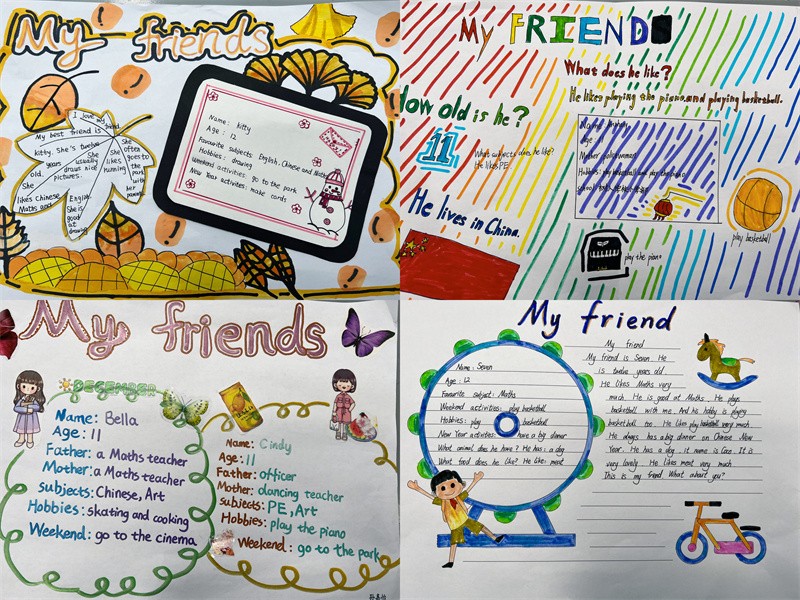 My friends
I love my friend.
My best friend is
kitty. She's twelve
years old.
She
likes chinese
Maths and
English.
She is
good at
drawing
She
usually
draws nice
pictures.
She
likes
running
She
often
goes to
the park
with
her
parents
Name: kitty
Age: 12
Favourite subjects: English, Chinese and Maths
Hobbies: drawing
weekend activities: go to the park
New Year activities: make cards
My FRIEND
What does he like?
He likes playing the piano and playing basketball.
How old is he?
11
What subjects does he like?
He likes PE.
He lives in China.
Name:
age
Mother:
Hobbies: play basketball and play the piano
school
play the piano
play basketball
My friends
DECEMBER
Name: Bella
Age: 11
Father: a Maths teacher
Mother: a Maths teacher
subjects: Chinese, Art
Hobbies: skating and cooking
Weekend: go to the cinema
Name: Cindy
Age: 11
Father: officer
Mother: dancing teacher
Subjects: PE, Art
Hobbies: play the piano
Weekend: go to the park
My friend
Name:
Age: 12
Favourite subject: Maths
Weekend activities: play basketball
Hobbies: play basketball
New Year activities: have a big dinner
What animal does he have? He has a dog
What food does he like? He likes meat
My friend
My friend is He
is twelve years old
He likes Maths very
much. He is good at Maths. He plays
basketball with me. And his hobby is playing
basketball too. He likes play basketball very much
He always has a big dinner on Chinese New
Year. He has a dog, it name is Coco. It is
very lovely. He likes meat very much
This is my friend. What about you?